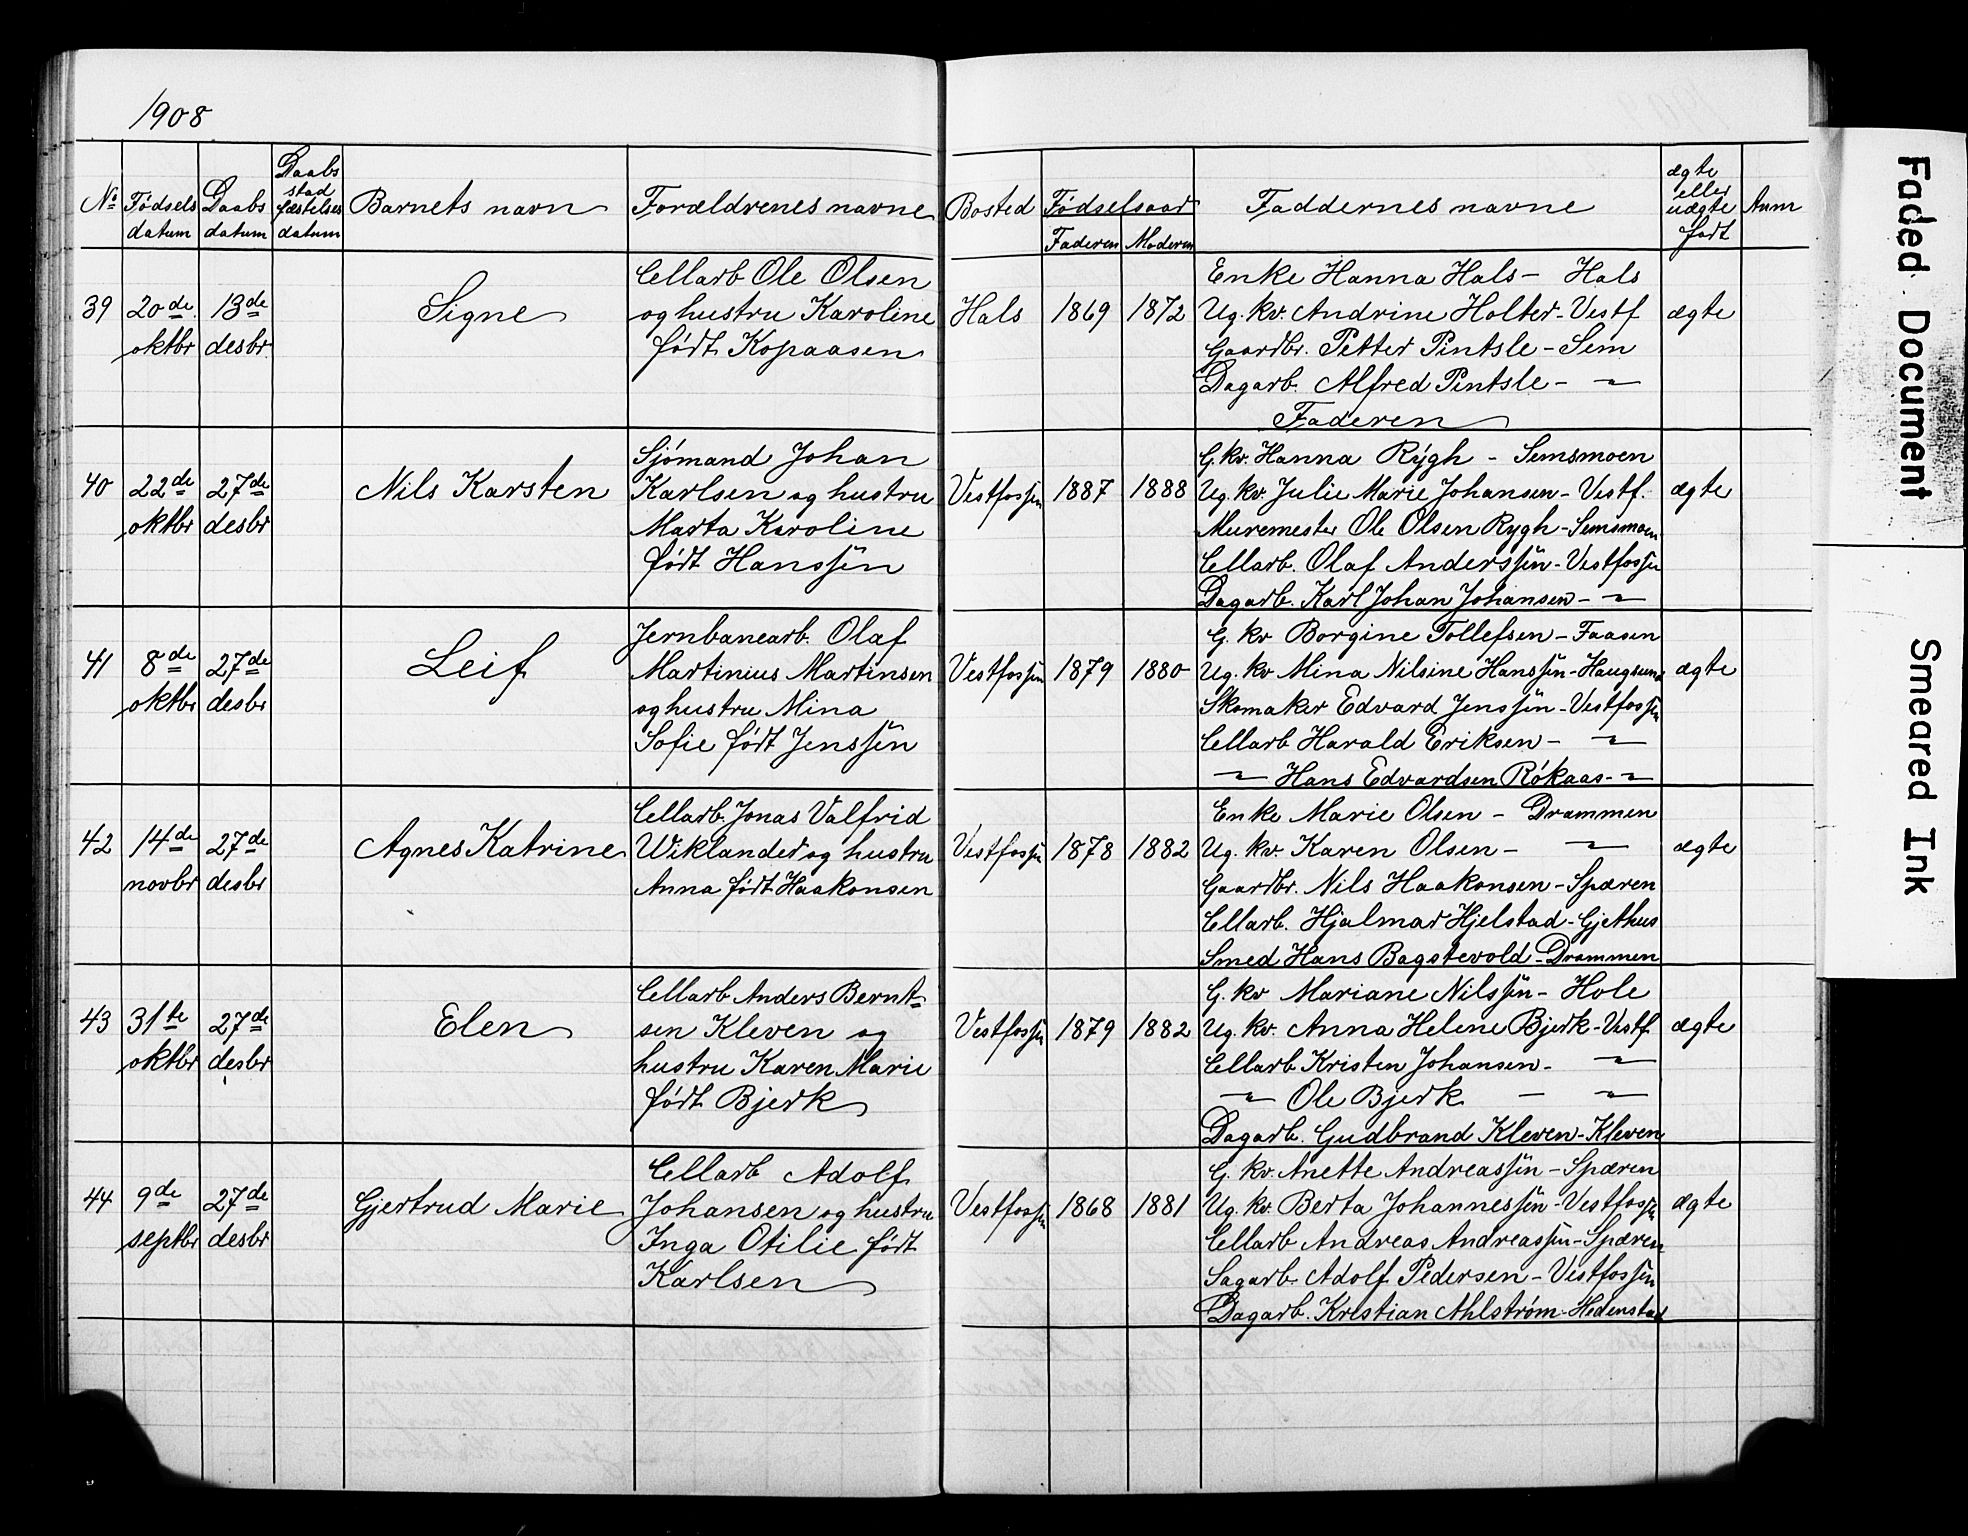 1908
No Fødsels datum Daabs datum Daabs stad fæstelses datum Barnets navn Forældrenes navne Bosted Fødselsaar Faderen Moderen Faddernes navne ægte eller uægte født Anm
39 20de oktbr 13de desbr Signe
Cellarb Ole Olsen
og hustru Karoline
født Kopaasen
Hals 1869 1872
Enke Hanna Hals - Hals
Ug. kv. Andrine Holter - Vestf
Gaardbr. Petter Pintsle - Sem
Dagarb. Alfred Pintsle - 〃
Faderen
ægte
40 22de oktbr 27de desbr Nils Karsten
Sjómand Johan
Karlsen og hustru
Marta Karoline
født Hanssen
Vestfossen 1887 1888
G. kv. Hanna Rygh - Semsmoen
Ug. kv. Julie Marie Johansen - Vestf.
Muremester Ole Olsen Rygh - Semsmoen
Cellarb. Olaf Anderssen - Vestfossen
Dagarb. Karl Johan Johansen - 〃
ægte
41 8de oktbr 27de desbr Leif
Jernbanearb. Olaf
Martinius Martinsen
og hustru Mina
Sofie født Jenssen
Vestfossen 1879 1880
G. kv Borgine Tollefsen - Faasen
Ug. kv Mina Nilsine Hanssen - Haugsund
Skomaker Edvard Jenssen - Vestfossen
Cellarb Harald Eriksen - 〃
〃 Hans Edvardsen Rókaas - 〃
ægte
42 14de novbr 27de desbr Agnes Katrine
Cellarb. Jonas Valfrid
Wiklander og hustru
Anna født Haakonsen
Vestfossen 1878 1882
Enke Marie Olsen - Drammen
Ug. kv. Karen Olsen - 〃
Gaardbr. Nils Haakonsen - Spæren
Cellarb. Hjalmar Hjelstad - Gjethus
Smed Hans Bagstevold - Drammen
ægte
43 31te oktbr 27de desbr Elen
Cellarb Anders Bernt-
sen Kleven og
hustru Karen Marie
født Bjerk
Vestfossen 1879 1882
G. kv Mariane Nilssen - Hole
Ug. kv. Anna Helene Bjerk - Vestf.
Cellarb Kristen Johansen - 〃
〃 Ole Bjerk - 〃
Dagarb. Gudbrand Kleven - Kleven
ægte
44 9de septbr 27de desbr Gjertrud Marie
Cellarb Adolf
Johansen og hustru
Inga Otilie født
Karlsen
Vestfossen 1868 1881
G. kv. Anette Andreassen - Spæren
Ug. kv. Berta Johannessen - Vestfossen
Cellarb Andreas Andreassen - Spæren
Sagarb. Adolf Pedersen - Vestfossen
Dagarb. Kristian Ahlstrøm - Hedenstad
ægte
Faded Document
Smeared Ink